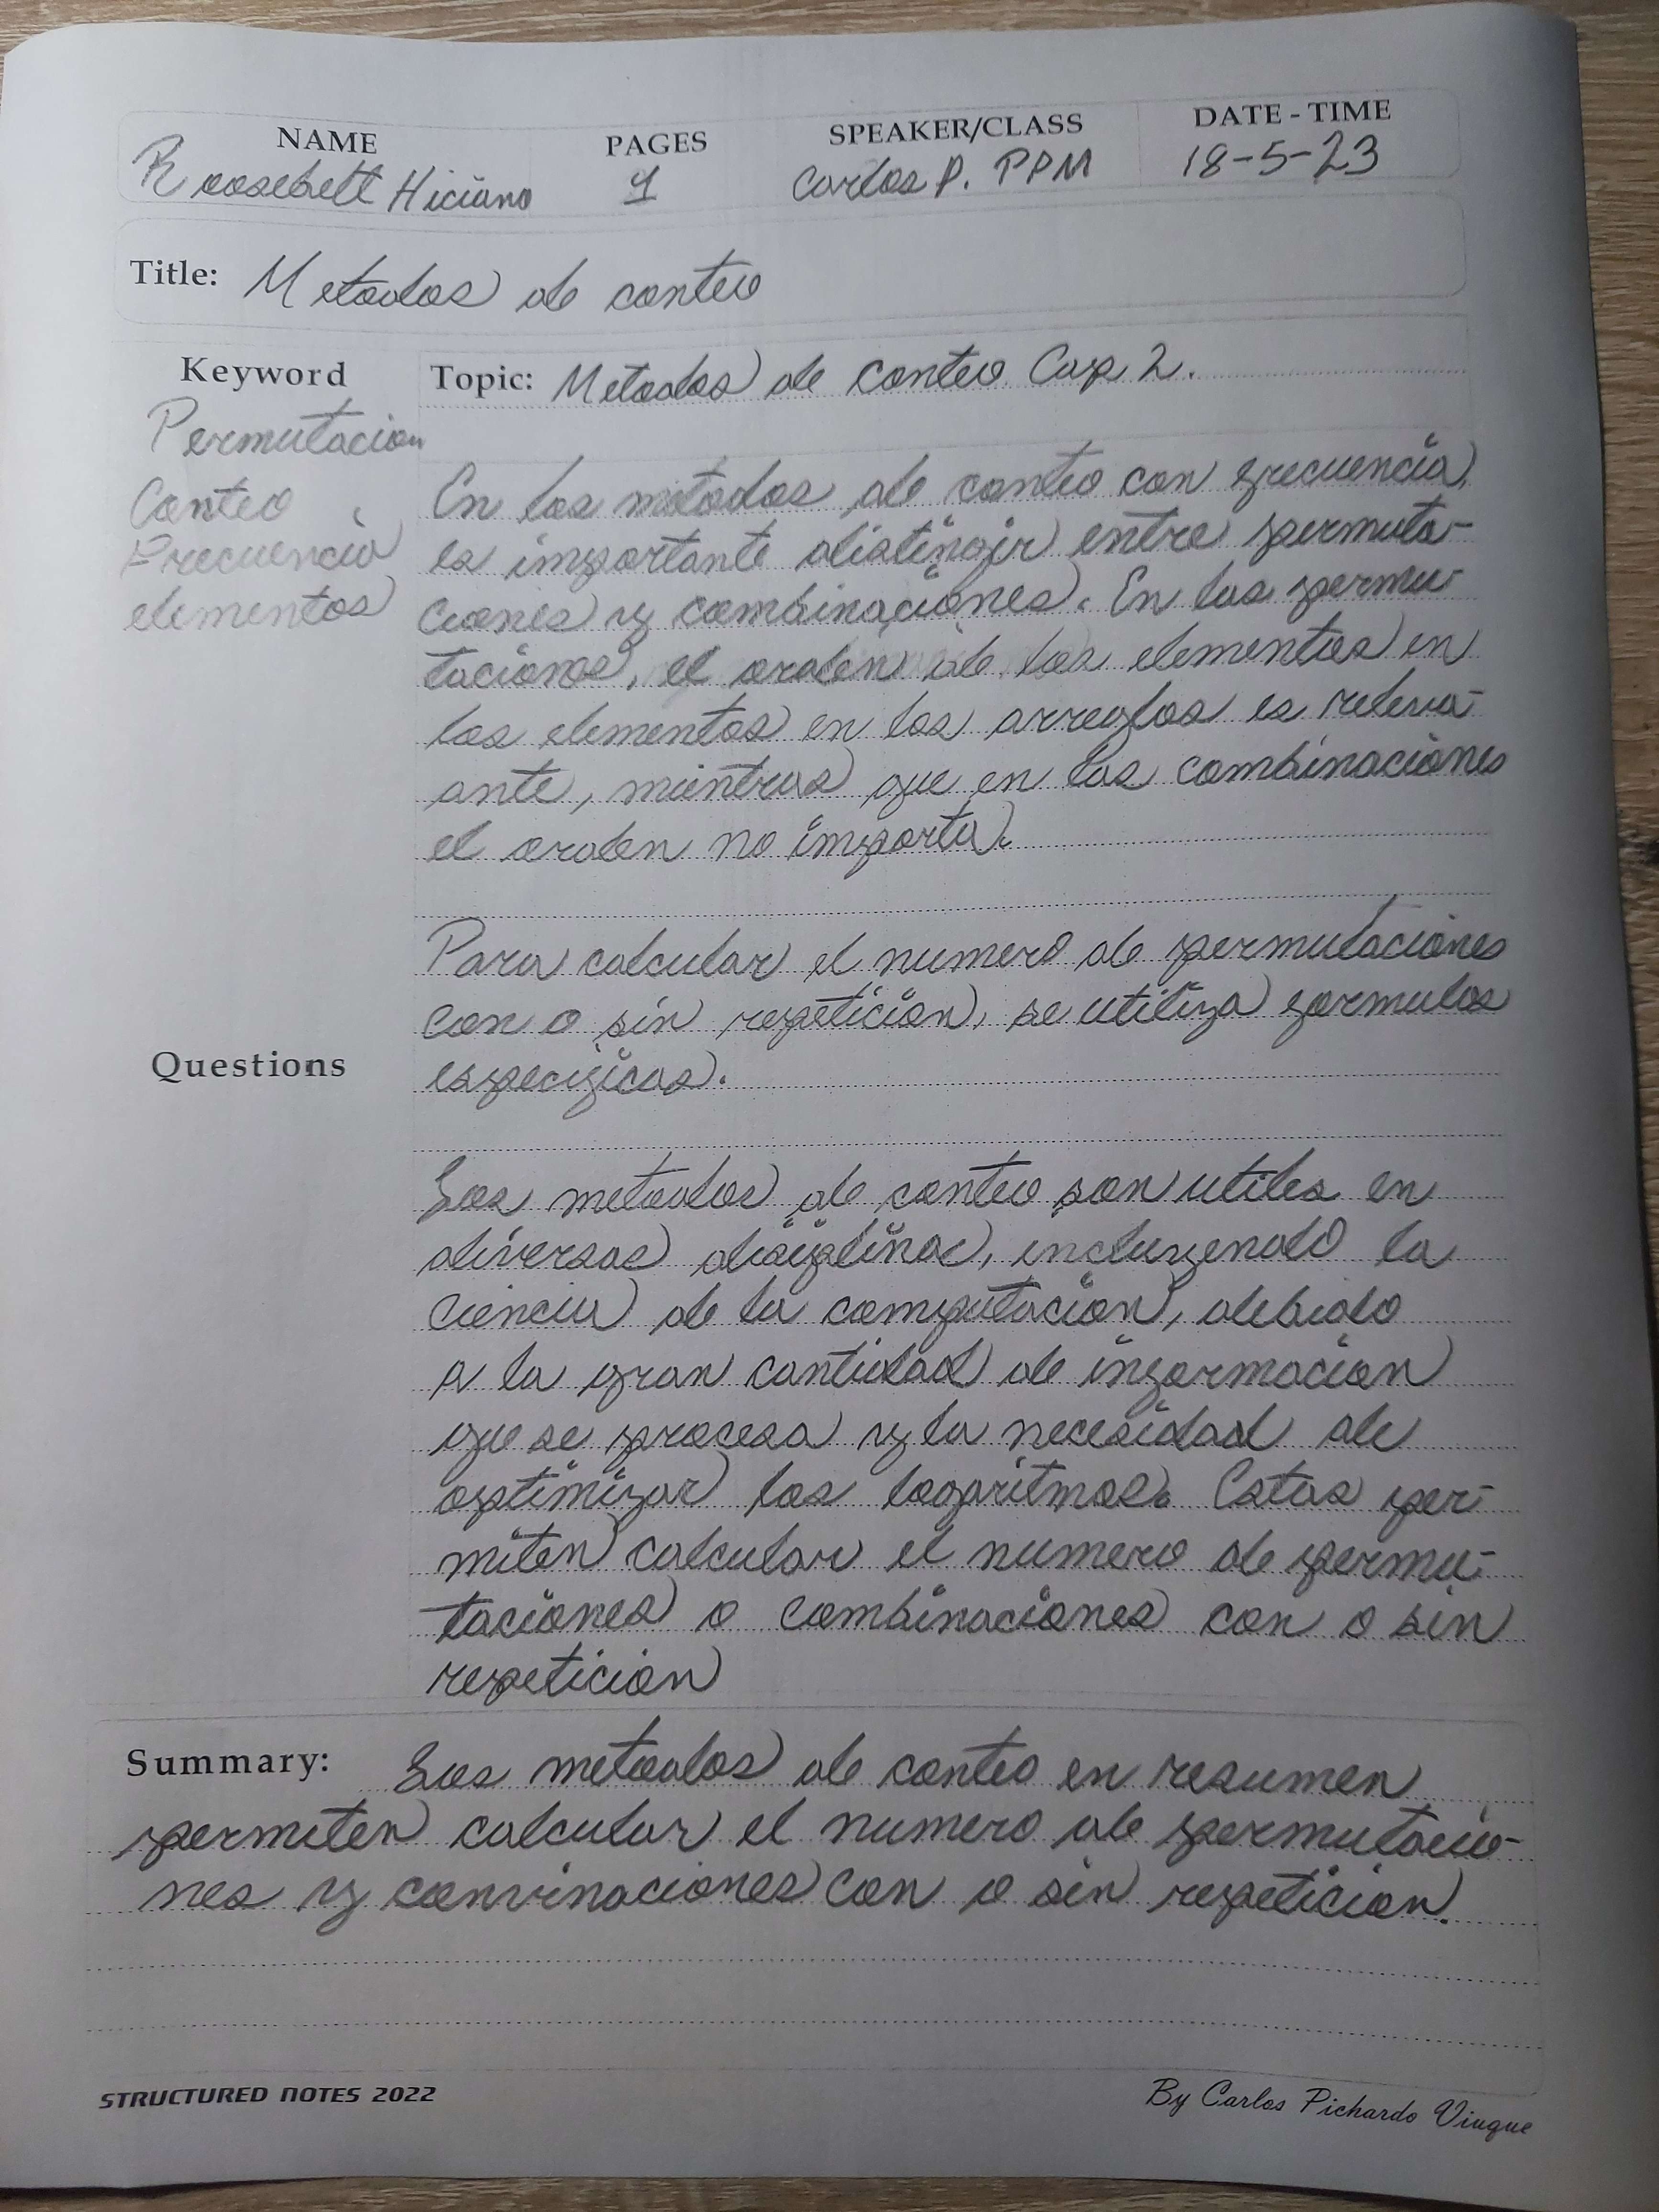 NAME PAGES SPEAKER/CLASS DATE - TIME
Roosebelt Hiciano 1 Carlos P. PPM 18-5-23
Title: Metodos de conteo
Keyword
Topic: Metodos de conteo Cap 2.
Permutacion
Conteo
Frecuencia
elementos
En los metodos de conteo con frecuencia,
es importante distingir entre permuta-
ciones y combinaciones. En las permu-
taciones, el orden de los elementos en
los elementos en los arreglos es releva-
ante, mientras que en las combinaciones
el orden no importa.
Para calcular el numero de permutaciones
con o sin repeticion, se utiliza formulas
especificas.
Questions
Los metodos de conteo son utiles en
diversas disciplinas, incluyendo la
ciencia de la computacion, debido
a la gran cantidad de informacion
que se procesa y la necesidad de
optimizar los logaritmos. Estas per-
miten calcular el numero de permu-
taciones o combinaciones con o sin
repeticion
Summary: Los metodos de conteo en resumen
permiten calcular el numero de permutacio-
nes y convinaciones con o sin repeticion.
STRUCTURED NOTES 2022
By Carlos Pichardo Viuque